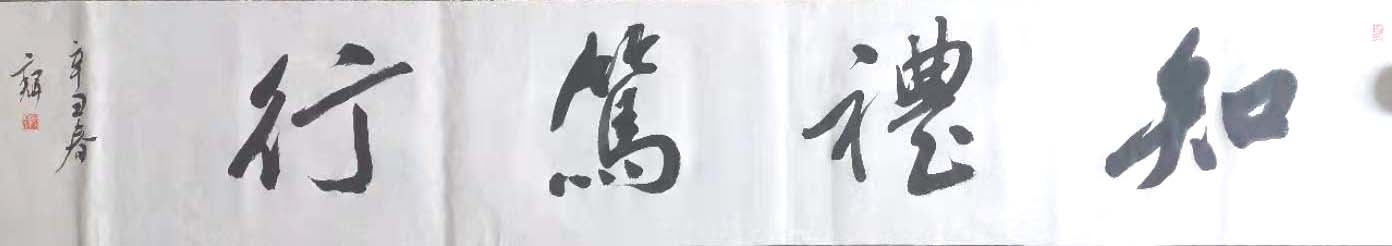 知禮篤行
辛丑春